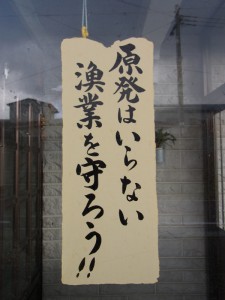 原発はいらない
漁業を守ろう!!